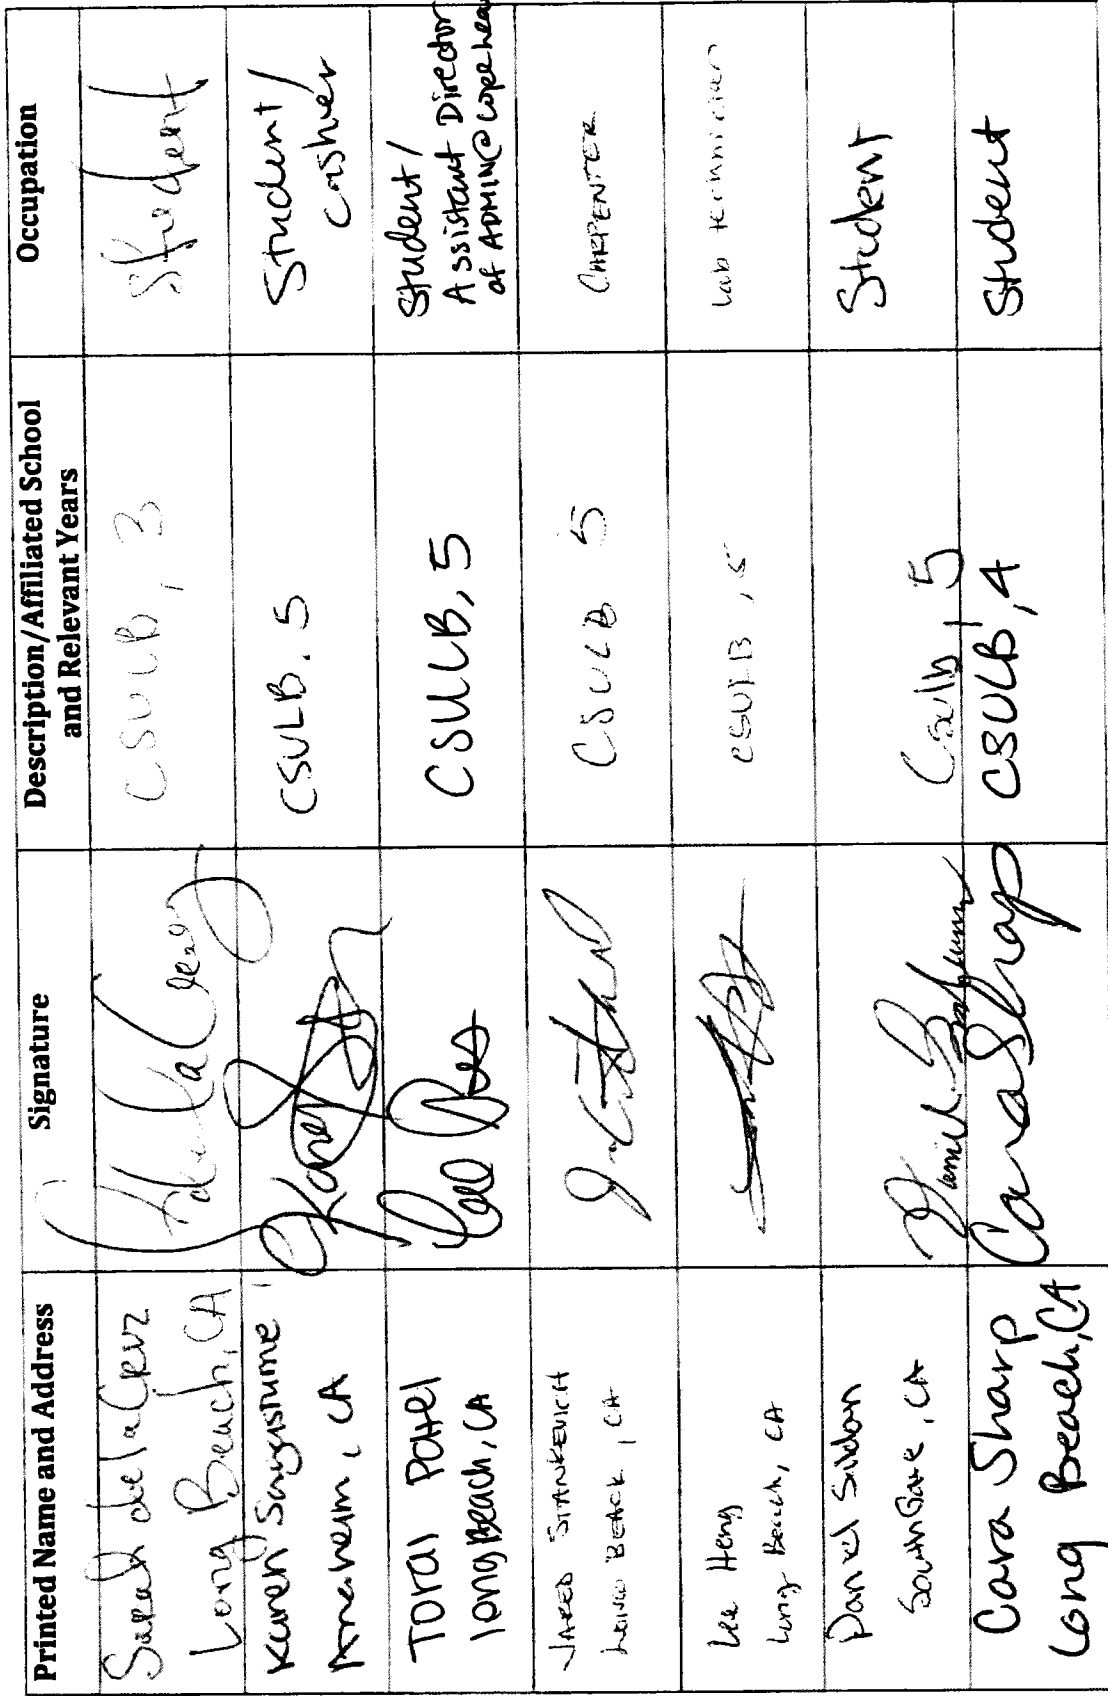 Printed Name and Address
Signature
Description/Affiliated School
and Relevant Years
Occupation
Sarah dela Cruz
Long Beach, CA
CSULB, 3
Student
Karen
Anaheim, CA
Karen
CSULB. 5
Student/
cashier
Toral Patel
long Beach, CA
CSULB, 5
Student/
Assistant Director
of ADMIN@
JARED STANKEVICH
LONG BEACH, CA
CSULB 5
CARPENTER
Lee Heng
Long Beach, CA
CSULB, 5
Lab technician
Daniel
South Gate, CA
Csulb, 5
Student
Cara Sharp
Long Beach, CA
Cara Sharp
CSULB, 4
Student